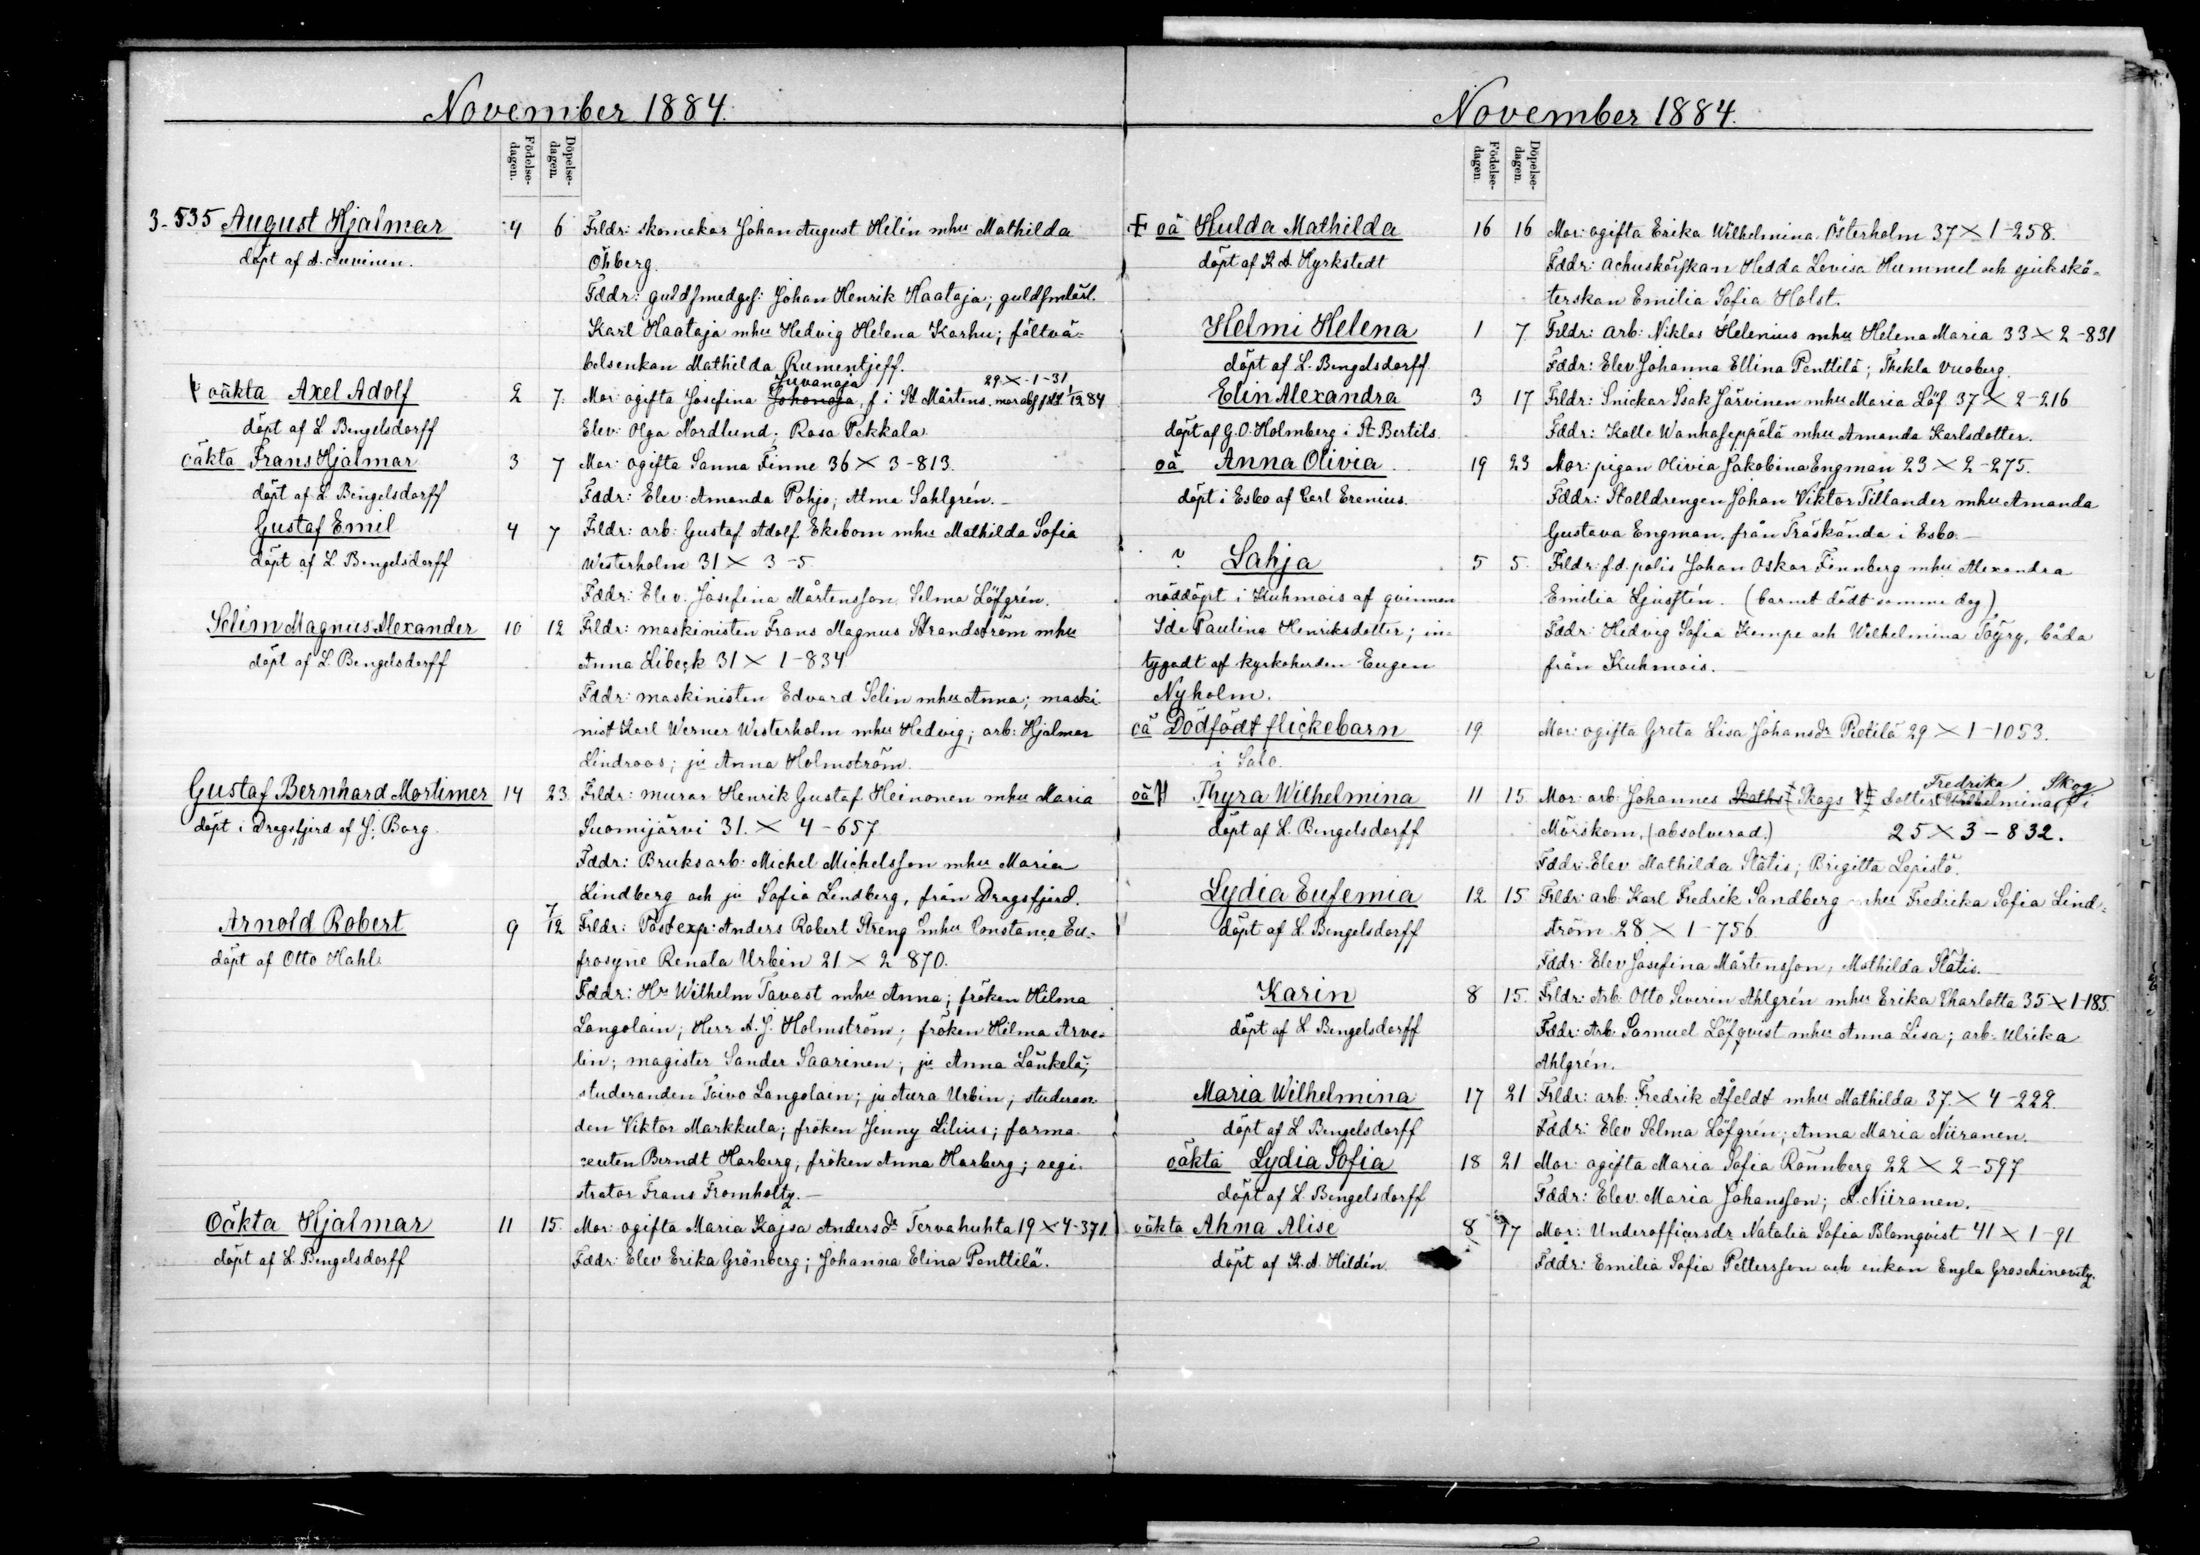 November 1884.
Födelse-
dagen.
Döpelse-
dagen.
3-535 August Hjalmar 4 6 Frldr: skomakar Johan August Helén mhu Mathilda
döpt af A. Öhberg.
Fddr: guldsmedges: Johan Henrik Haataja; guldsmlärl.
Karl Haataja mhu Hedvig Helena Karhu; fältvä-
belsenkan Mathilda Rumentjeff.
Juvanoja 29 × 1-31
oäkta Axel Adolf 2 7. Mor: ogifta Josefina Johanoja, f i St Mårtens.
döpt af L. Bengelsdorff Elev: Olga Nordlund; Rosa Pekkala.
oäkta Frans Hjalmar 3 7 Mor: ogifta Sanna Finne 36 × 3-813.
döpt af L. Bengelsdorff Fddr: Elev: Amanda Pohjo; Alma Sahlgrén.-
Gustaf Emil 4 7 Frldr: arb: Gustaf Adolf Ekebom mhu Mathilda Sofia
döpt af L. Bengelsdorff Westerholm 31 × 3-5
Fddr: Elev. Josefina Mårtensson, Selma Löfgrén.
Selim Magnus Alexander 10 12 Frldr: maskinisten Frans Magnus Strandström mhu
döpt af L. Bengelsdorff Anna Libeck 31 × 1-834
Fddr: maskinisten Edvard Selin mhu Anna; maski-
nist Karl Werner Westerholm mhu Hedvig; arb: Hjalmar
Lindroos; ju Anna Holmström.
Gustaf Bernhard Mortimer 14 23 Frldr: murar Henrik Gustaf Heinonen mhu Maria
döpt i Dragsfjerd af J. Borg. Suomijärvi 31. × 4-657
Fddr: Bruksarb: Michel Michelsson mhu Maria
Lindberg och ju Sofia Lindberg, från Dragsfjerd.
Arnold Robert 9 7/12 Frldr: Postexp: Anders Robert Streng mhu Constance Eu-
döpt af Otto Hahl. frosyne Renata Urbin 21 × 2 870.
Fddr: Hr Wilhelm Tavast mhu Anna; fröken Hilma
Langolain; Herr A. J. Holmström; fröken Hilma Arve-
lin; magister Sander Saarinen; ju Anna Länkelä;
studeranden Toivo Langolain; ju Aura Urbin; studeran-
den Viktor Markkula; fröken Jenny Lilius; farma-
ceuten Berndt Harberg; fröken Anna Harberg; regi-
strator Frans Fromholtz.-
Oäkta Hjalmar 11 15. Mor: ogifta Maria Kajsa Andersdr Tervahuhta 19 × 4-371.
döpt af L. Bengelsdorff Fddr: Elev Erika Grönberg; Johanna Elina Penttilä.
November 1884.
Födelse-
dagen.
Döpelse-
dagen.
oä Hulda Mathilda 16 16 Mor: ogifta Erika Wilhelmina Österholm 37 × 1-258.
döpt af K A Hyrkstedt Fddr: Hedda Lovisa Hummel och sjukskö-
terskan Emilia Sofia Holst.
Helmi Helena 1 7 Frldr: arb: Niklas Helenius mhu Helena Maria 33 × 2-831
döpt af L. Bengelsdorff. Fddr: Elev Johanna Ellina Penttilä; Thekla Vuoberg.
Elin Alexandra 3 17 Frldr: Snickar Isak Järvinen mhu Maria Löf 37 × 2-216
döpt af G.O. Holmberg i St Bertils. Fddr: Kalle Wanhaseppälä mhu Amanda Karlsdotter.
oä Anna Olivia 19 23 Mor: pigan Olivia Jakobina Engman 23 × 2-275.
döpt i Esbo af Carl Erenius. Fddr: Stalldrengen Johan Viktor Tillander mhu Amanda
Gustava Engman, från Träskända i Esbo.-
Lahja 5 5. Frldr: fd. polis Johan Oskar Finnberg mhu Alexandra
nöddöpt i Kuhmois af qvinnan Emilia Ljusstén. (barnet dödt samma dag)
Ida Paulina Henriksdotter; in- Fddr: Hedvig Sofia Kempe och Wilhelmina Töyry, båda
tygadt af kyrkoherden Eugen från Kuhmois.-
Nyholm.
oä Dödfödt flickebarn 19 Mor: ogifta Greta Lisa Johansdr Pietilä 29 × 1-1053.
i Salo.
Fredrika Skog
oä Thyra Wilhelmina 11 15. Mor: arb: Johannes Skogs dotter Wilhelmina f i
döpt af L. Bengelsdorff Mörskom, (absolverad.) 25 × 3-832.
Fddr: Elev Mathilda Stätis; Brigitta Lepistö.
Lydia Eufemia 12 15 Frldr: arb: Karl Fredrik Sandberg mhu Fredrika Sofia Lind-
döpt af L. Bengelsdorff ström 28 × 1-756
Fddr: Elev Josefina Mårtensson, Mathilda Stätis.
Karin 8 15. Frldr: Arb: Otto Severin Ahlgrén mhu Erika Charlotta 35 × 1-185.
döpt af L. Bengelsdorff Fddr: Arb: Samuel Löfqvist mhu Anna Lisa; arb: Ulrika
Ahlgrén.
Maria Wilhelmina 17 21 Frldr: arb: Fredrik Åfeldt mhu Mathilda 37. × 4-222.
döpt af L Bengelsdorff Fddr: Elev Selma Löfgrén; Anna Maria Niiranen.
oäkta Lydia Sofia 18 21 Mor: ogifta Maria Sofia Rönnberg 22 × 2-597
döpt af L. Bengelsdorff Fddr: Elev. Maria Johansson; A. Niiranen.
oäkta Ahna Alise 8 17 Mor: Underofficersdr Natalia Sofia Blomqvist 41 × 1-91
döpt af K. A. Hildén Fddr: Emilia Sofia Pettersson och enkan Engla Groschinovitz.